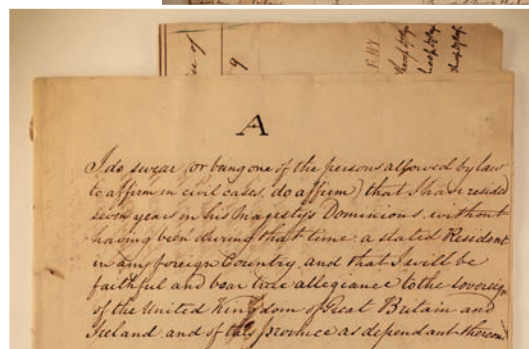 A
I do swear (or being one of the persons allowed by law
to affirm in civil cases, do affirm) that I have resided
seven years in his Majesty's Dominions, without
having been during that time, a stated Resident
in any foreign Country, and that I will be
faithful and bear true allegiance to the Sovereign
of the United Kingdom of Great Britain and
Ireland, and of this province as dependant thereon.